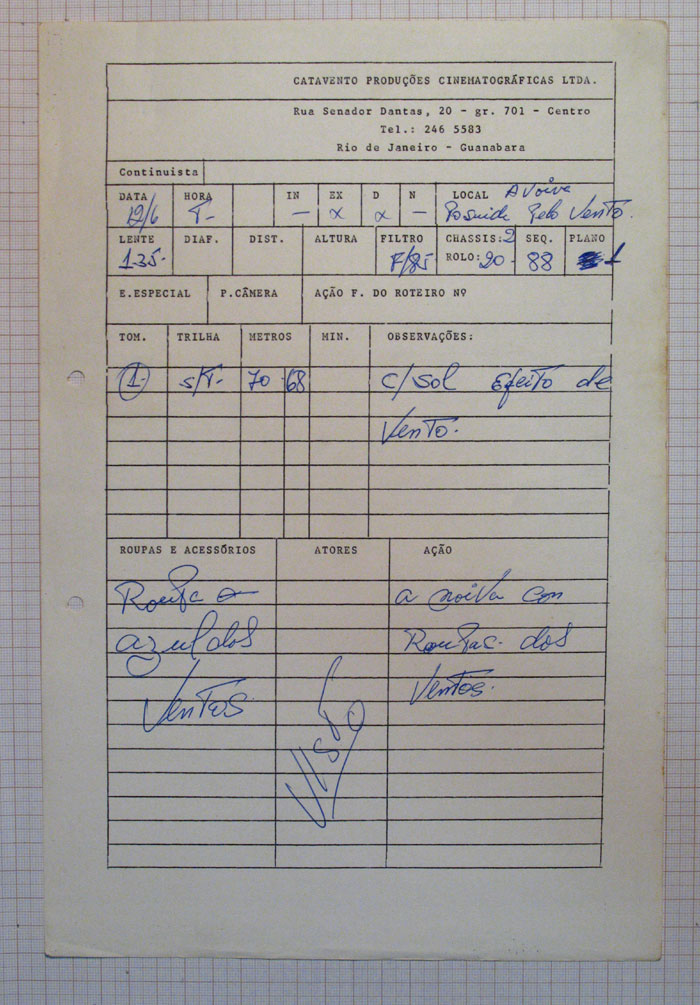 CATAVENTO PRODUÇÕES CINEMATOGRÁFICAS LTDA.
Rua Senador Dantas, 20 - gr. 701 - Centro
Tel.: 246 5583
Rio de Janeiro - Guanabara
Continuista
DATA HORA IN EX D N LOCAL A Noiva
12/6 T- — x x — Possuida Pelo Vento.
LENTE DIAF. DIST. ALTURA FILTRO CHASSIS: 2 SEQ. PLANO
135. F/85 ROLO: 20 - 88 1
E.ESPECIAL P.CÂMERA AÇÃO F. DO ROTEIRO Nº
TOM. TRILHA METROS MIN. OBSERVAÇÕES:
1- s/T- 70 68 c/sol Efeito de
Vento.
ROUPAS E ACESSÓRIOS ATORES AÇÃO
Roupa a noiva con
azul dos Roupas dos
Ventos Ventos.
Visto